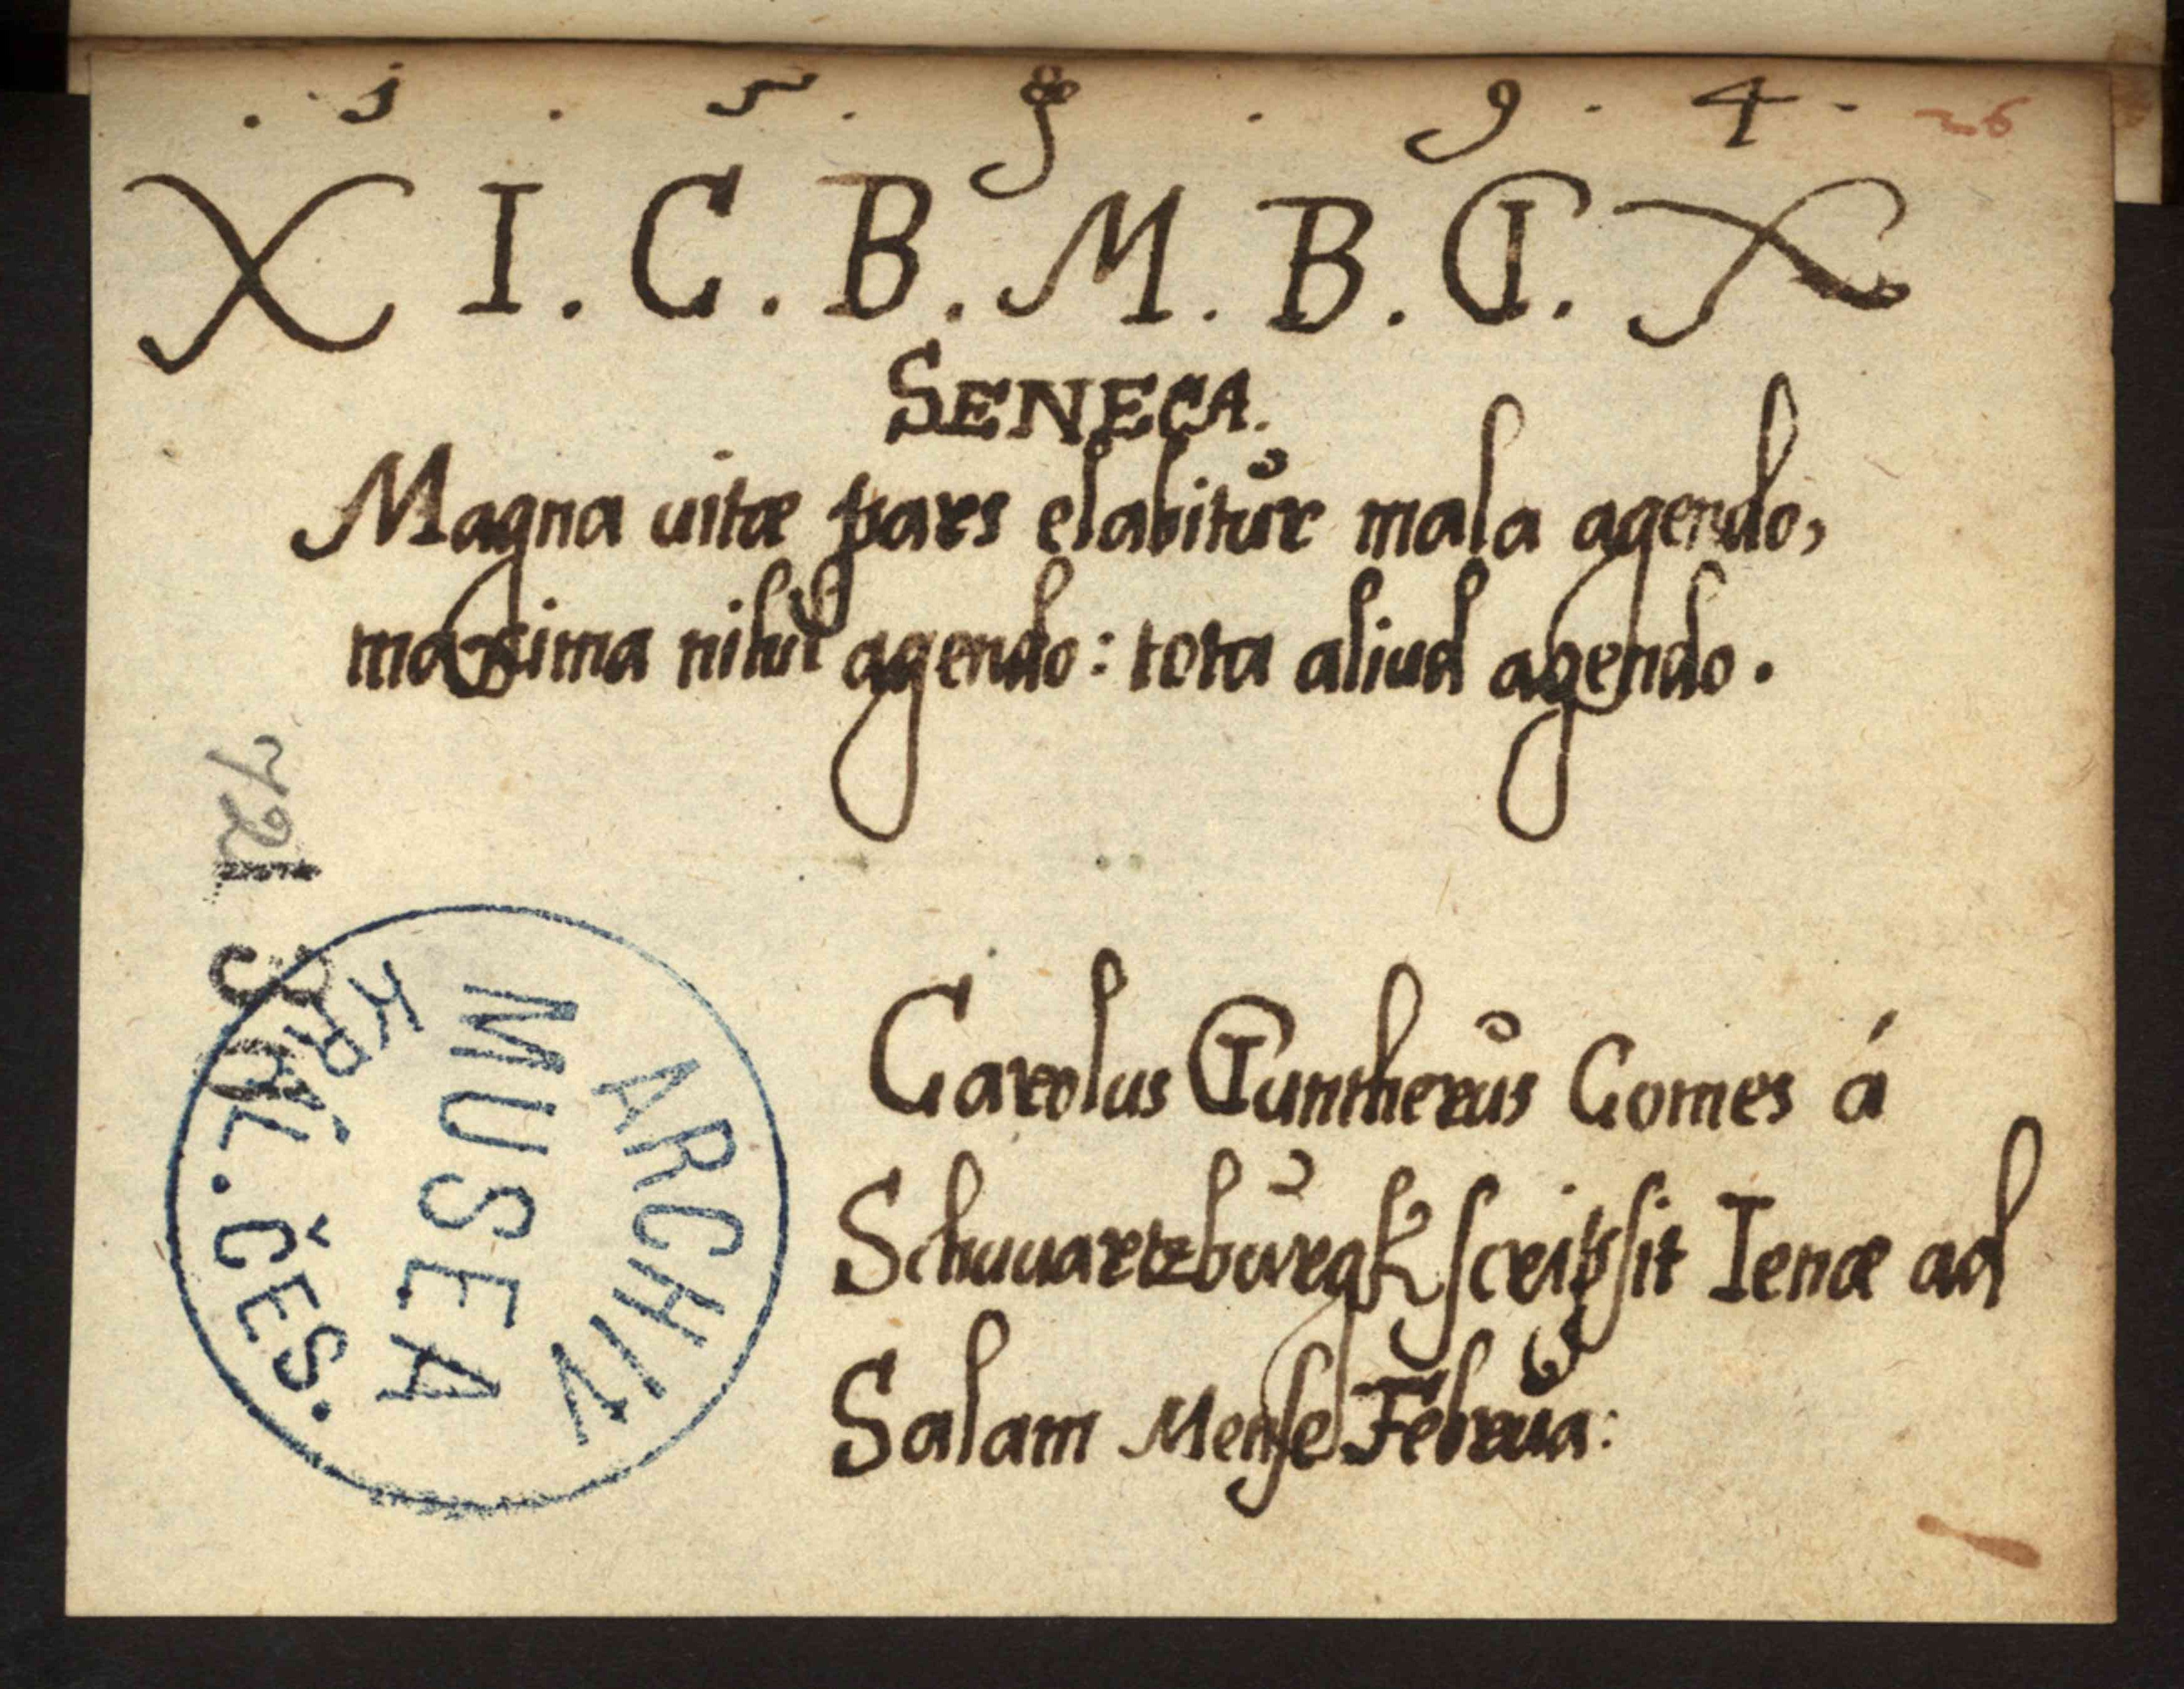 . 1 . 5 . 8 . 9 . 4 . 26
I . C . B . M . B . G .
SENECA.
Magna uitæ pars elabitur mala agendo,
maxima nihil agendo: tota aliud agendo.
Carolus Guntherus Comes á
Schuuartzburgk scripsit Ienæ ad
Salam Mense Februa:
721
ARCHIV
MUSEA
KRÁL. ČES.